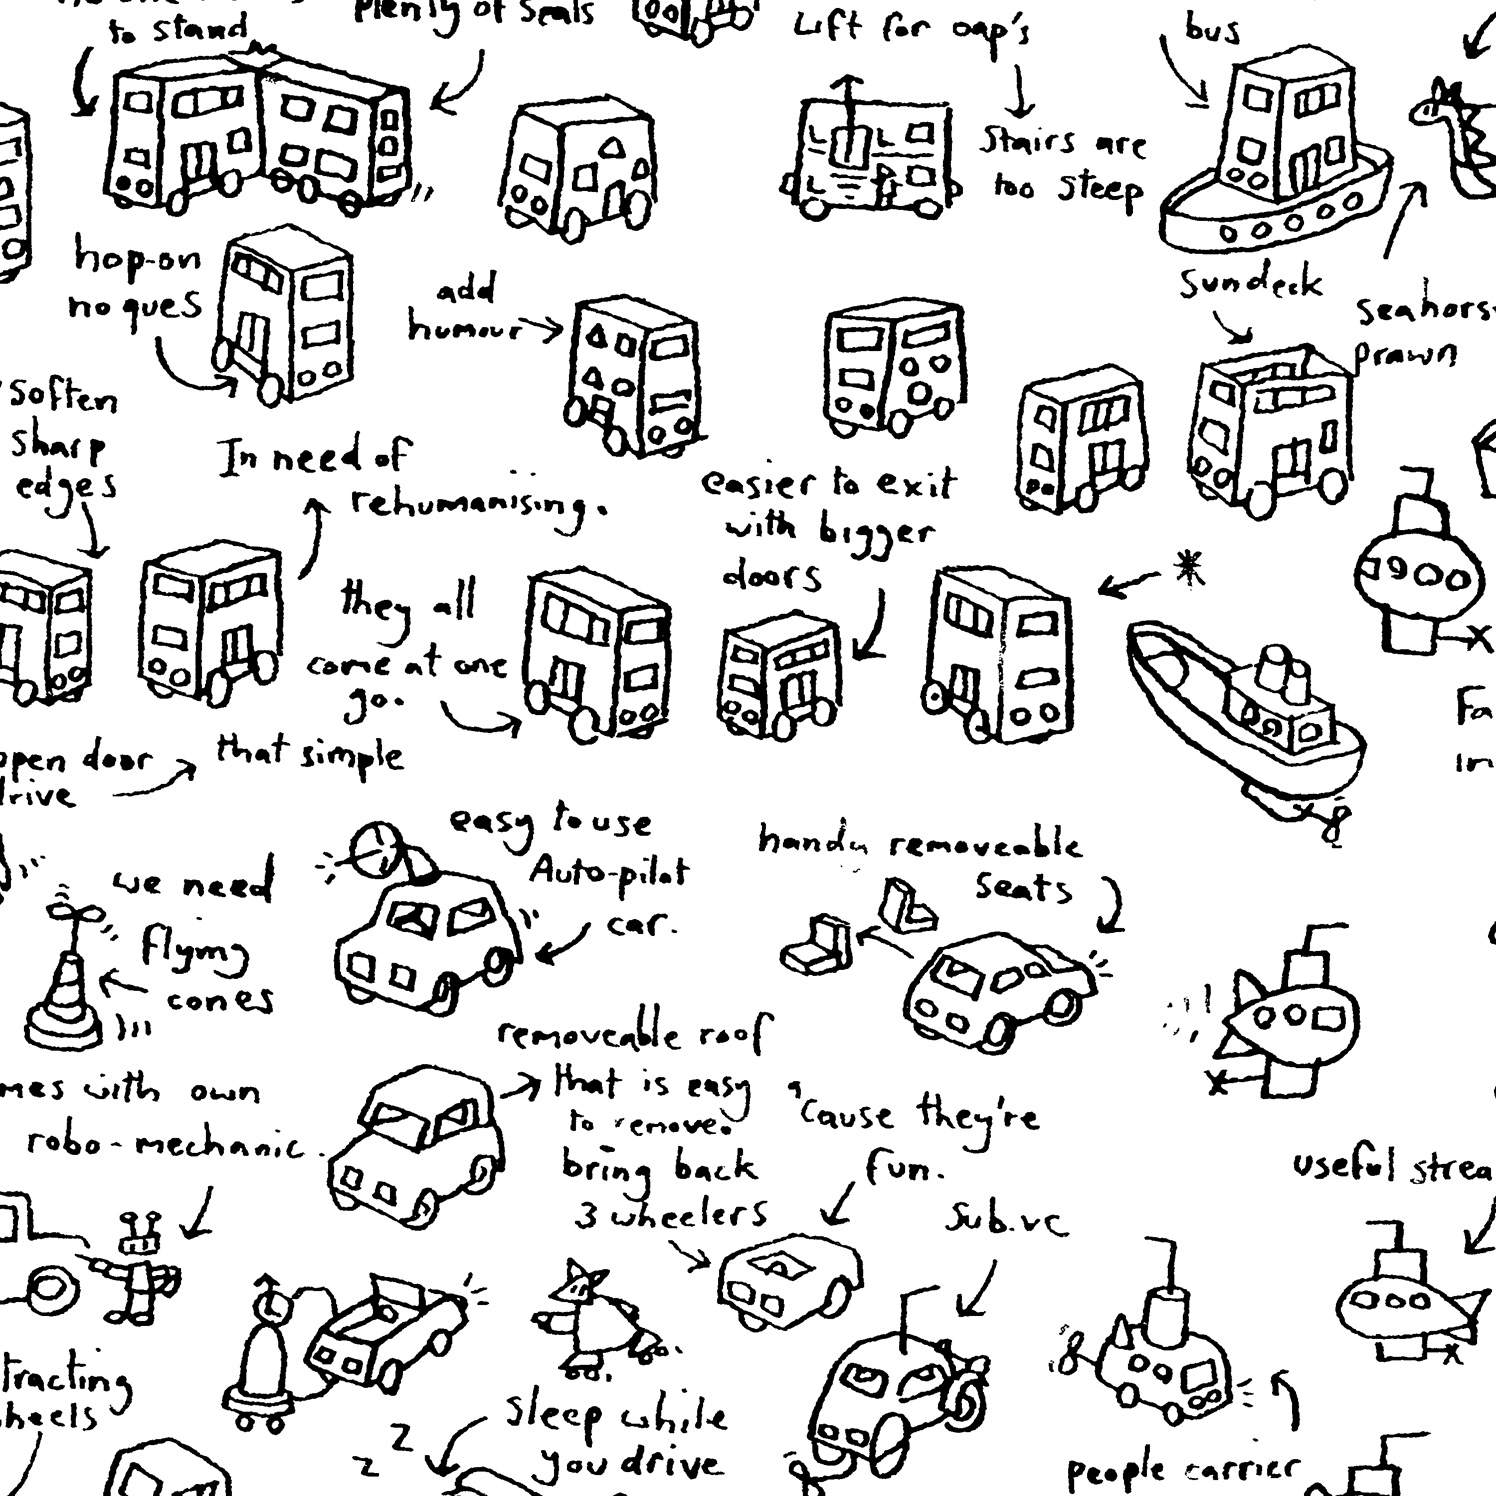 to stand
plenty of seats
Lift for oap's
bus
stairs are
too steep
hop-on
no ques
add
humour
Sundeck
seahors
prawn
Soften
sharp
edges
In need of
rehumanising.
easier to exit
with bigger
doors
they all
come at one
go.
open door
drive
that simple
easy to use
Auto-pilot
car.
we need
flying
cones
handy removeable
seats
removeable roof
that is easy
to remove.
'cause they're
fun.
mes with own
robo-mechanic.
bring back
3 wheelers
Sub.vc
useful strea
Fa
in
tracting
heels
sleep while
you drive
z
z
people carrier